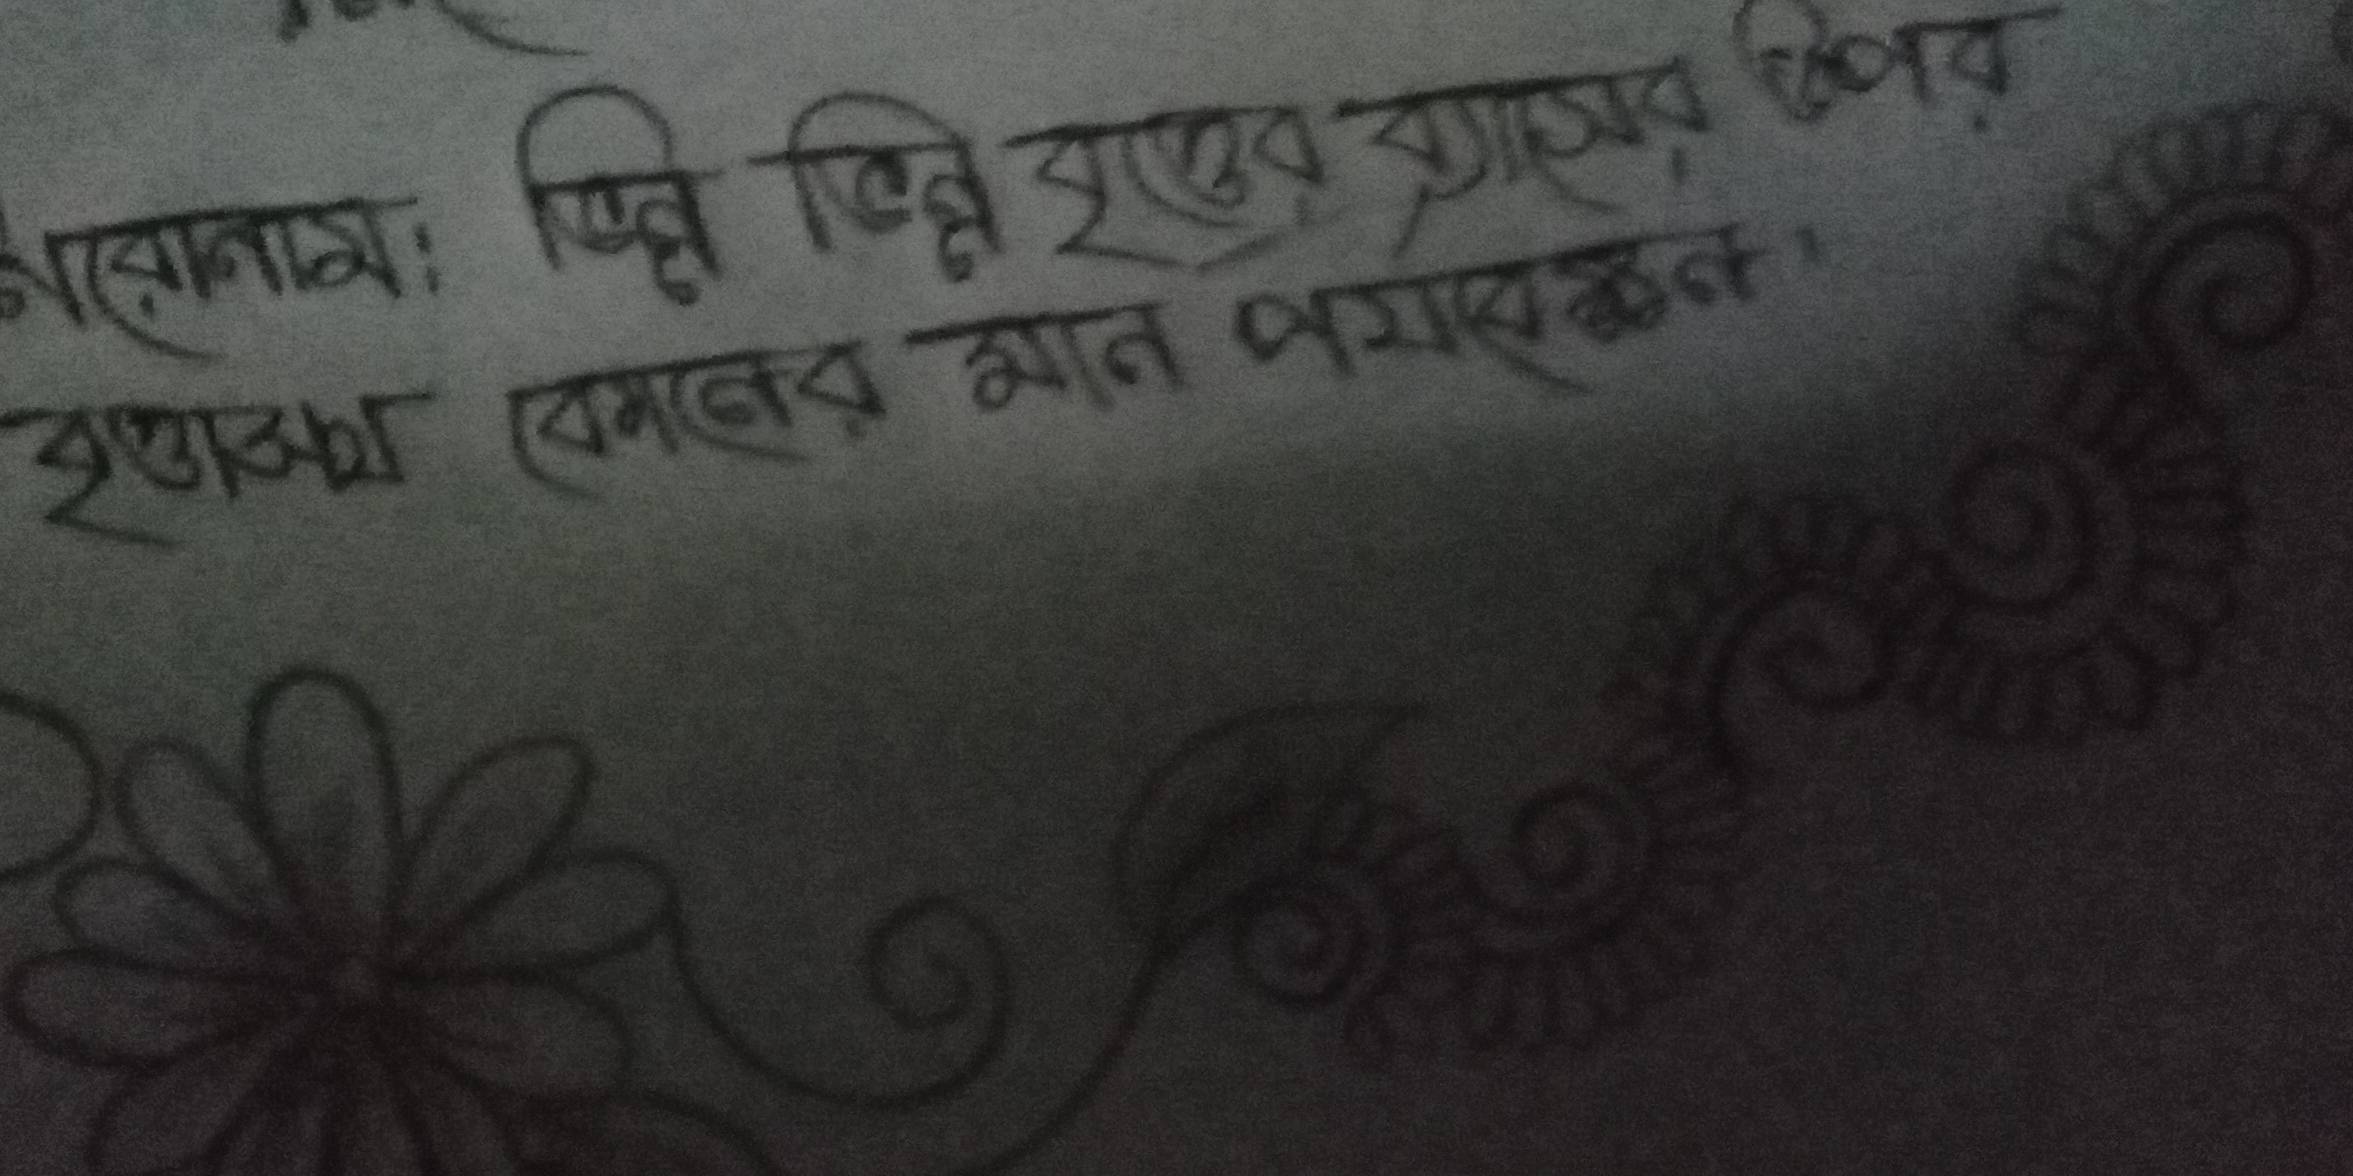 শিরোনাম: ভিন্ন ভিন্ন বৃত্তের ব্যাসের উপর
বৃত্তাকার মান পযবেক্ষন।